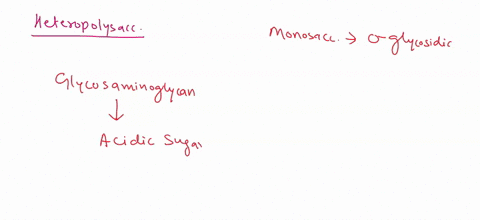 Heteropolysacc.
Monosacc. → O-glycosidic
Glycosaminoglycan
↓
Acidic Sugar